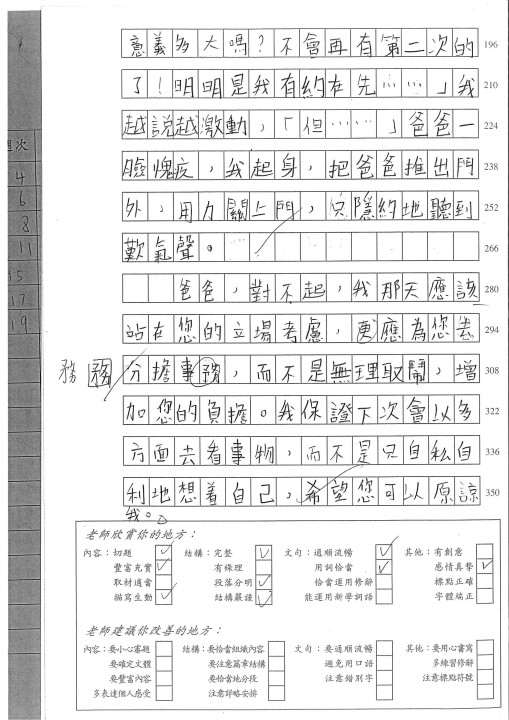 意義多大嗎？不會再有第二次的 196
了！明明是我有約在先……」我 210
越說越激動，「但……」爸爸一 224
臉愧疚，我起身，把爸爸推出門 238
外，用力關上門，只隱約地聽到 252
歎氣聲。 266
爸爸，對不起，我那天應該 280
站在您的立場考慮，更應為您去 294
務 務 分擔事務，而不是無理取鬧，增 308
加您的負擔。我保證下次會以多 322
方面去看事物，而不是只自私自 336
利地想着自己，希望您可以原諒 350
我。
老師欣賞你的地方：
內容：切題 ✓ 結構：完整 ✓ 文句：通順流暢 ✓ 其他：有創意
豐富充實 ✓ 有條理 用詞恰當 ✓ 感情真摯 ✓
取材適當 段落分明 ✓ 恰當運用修辭 標點正確
描寫生動 ✓ 結構嚴謹 ✓ 能運用新學詞語 字體端正
老師建議你改善的地方：
內容：要小心審題 結構：要恰當組織內容 文句：要通順流暢 其他：要用心書寫
要確定文體 要注意篇章結構 避免用口語 多練習修辭
要豐富內容 要恰當地分段 注意錯別字 注意標點符號
多表達個人感受 注意詳略安排
週次
4
6
8
11
15
17
19